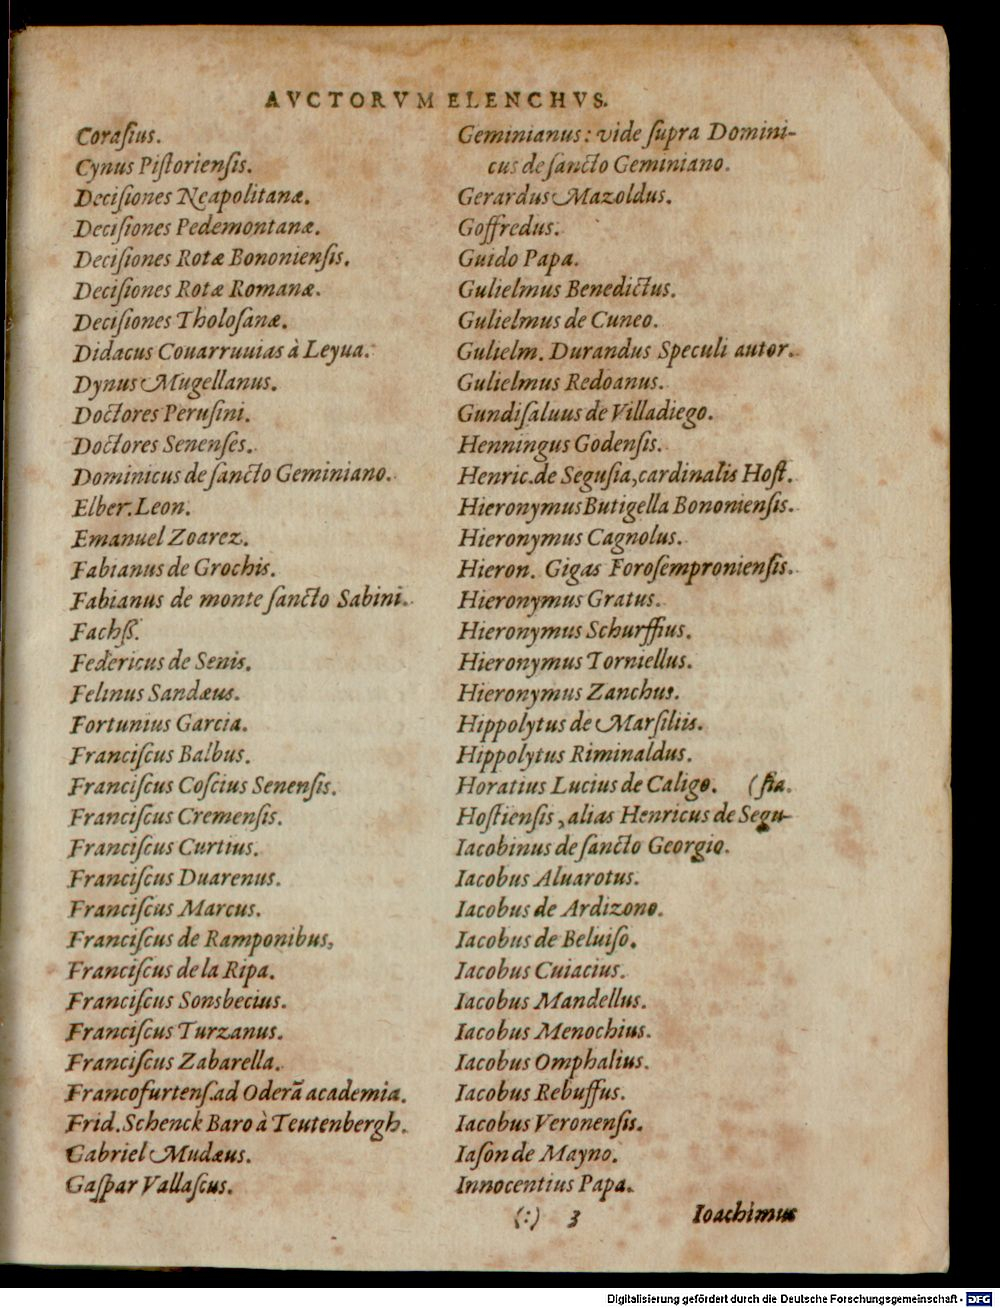 AVCTORVM ELENCHVS.
Corasius.
Cynus Pistoriensis.
Decisiones Neapolitanæ.
Decisiones Pedemontanæ.
Decisiones Rotæ Bononiensis.
Decisiones Rotæ Romanæ.
Decisiones Tholosanæ.
Didacus Couarruuias à Leyua.
Dynus Mugellanus.
Doctores Perusini.
Doctores Senenses.
Dominicus de sancto Geminiano.
Elber. Leon.
Emanuel Zoarez.
Fabianus de Grochis.
Fabianus de monte sancto Sabini.
Fachß.
Federicus de Senis.
Felinus Sandæus.
Fortunius Garcia.
Franciscus Balbus.
Franciscus Coscius Senensis.
Franciscus Cremensis.
Franciscus Curtius.
Franciscus Duarenus.
Franciscus Marcus.
Franciscus de Ramponibus,
Franciscus de la Ripa.
Franciscus Sonsbecius.
Franciscus Turzanus.
Franciscus Zabarella.
Francofurtens. ad Oderã academia.
Frid. Schenck Baro à Teutenbergh.
Gabriel Mudæus.
Gaspar Vallascus.
Geminianus: vide supra Domini-
cus de sancto Geminiano.
Gerardus Mazoldus.
Goffredus.
Guido Papa.
Gulielmus Benedictus.
Gulielmus de Cuneo.
Gulielm. Durandus Speculi autor.
Gulielmus Redoanus.
Gundisaluus de Villadiego.
Henningus Godensis.
Henric. de Segusia, cardinalis Host.
Hieronymus Butigella Bononiensis.
Hieronymus Cagnolus.
Hieron. Gigas Forosemproniensis.
Hieronymus Gratus.
Hieronymus Schurffius.
Hieronymus Torniellus.
Hieronymus Zanchus.
Hippolytus de Marsiliis.
Hippolytus Riminaldus.
Horatius Lucius de Caligo. (sia.
Hostiensis, alias Henricus de Segu-
Iacobinus de sancto Georgio.
Iacobus Aluarotus.
Iacobus de Ardizono.
Iacobus de Beluiso.
Iacobus Cuiacius.
Iacobus Mandellus.
Iacobus Menochius.
Iacobus Omphalius.
Iacobus Rebuffus.
Iacobus Veronensis.
Iason de Mayno.
Innocentius Papa.
(:) 3 Ioachimus
Digitalisierung gefördert durch die Deutsche Forschungsgemeinschaft - DFG